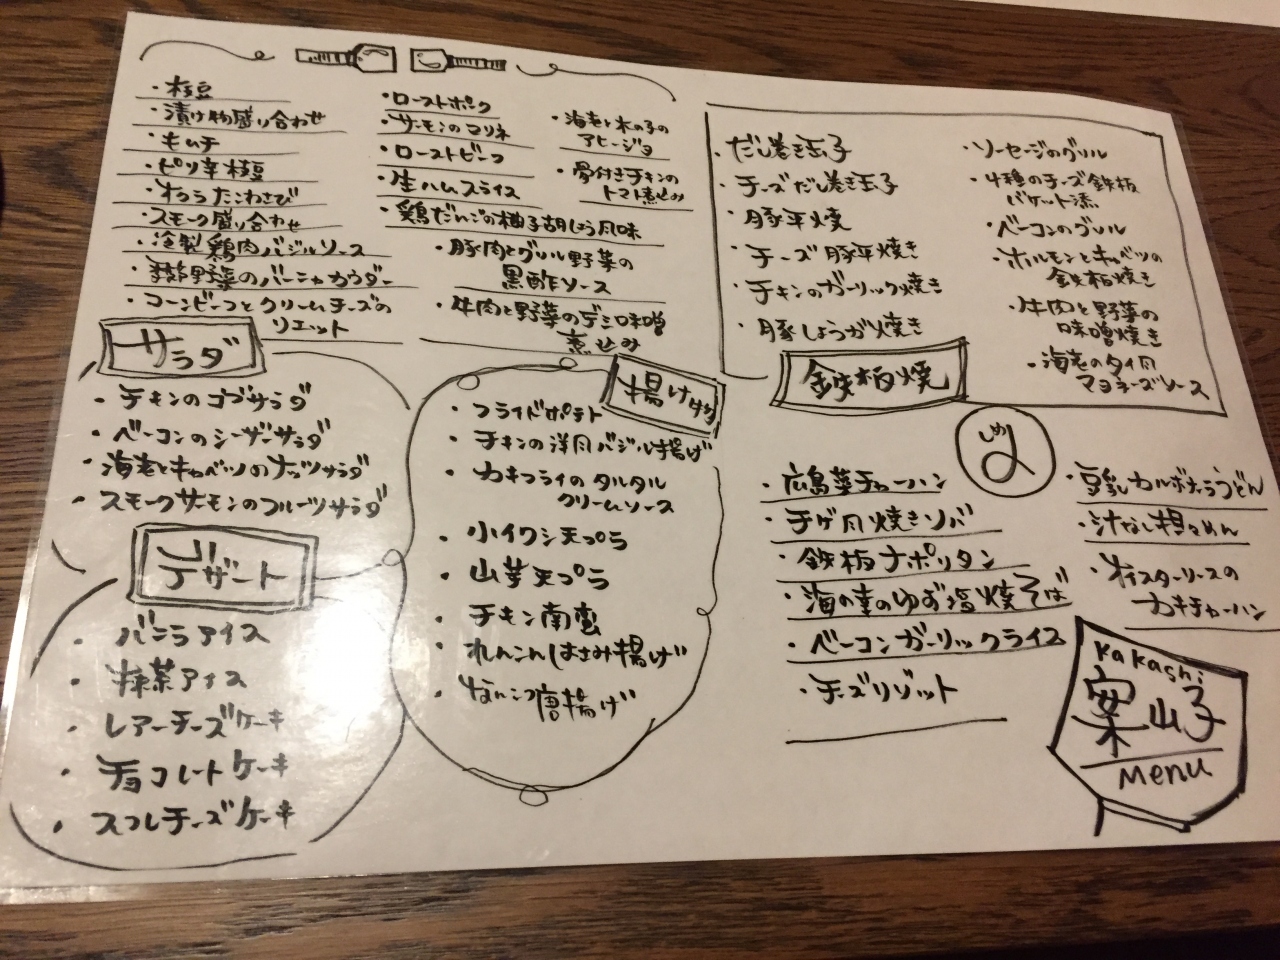 ・枝豆
・漬け物盛り合わせ
・キムチ
・ピリ辛枝豆
たこわさび
・スモーク盛り合わせ
・冷製鶏肉バジルソース
・野菜のバーニャカウダー
・コーンビーフとクリームチーズの
リエット
・ローストポーク
・サーモンのマリネ
・ローストビーフ
・生ハムスライス
・鶏だんごの柚子胡しょう風味
・豚肉とグリル野菜の
黒酢ソース
・牛肉と野菜のデミ味噌
煮込み
・海老と木の子の
アヒージョ
・骨付きチキンの
トマト煮込み
サラダ
・チキンのコブサラダ
・ベーコンのシーザーサラダ
・海老とキャベツのナッツサラダ
・スモークサーモンのフルーツサラダ
デザート
・バニラアイス
・抹茶アイス
・レアーチーズケーキ
・チョコレートケーキ
・スフレチーズケーキ
揚げ物
・フライドポテト
・チキンの洋風バジル揚げ
・カキフライのタルタル
クリームソース
・小イワシ天ぷら
・山芋天ぷら
・チキン南蛮
・れんこんはさみ揚げ
・なんこつ唐揚げ
・だし巻き玉子
・チーズだし巻き玉子
・豚平焼
・チーズ豚平焼き
・チキンのガーリック焼き
・豚しょうが焼き
・ソーセージのグリル
・4種のチーズ鉄板
バケット添
・ベーコンのグリル
・ホルモンとキャベツの
鉄板焼き
・牛肉と野菜の
味噌焼き
・海老のタイ風
マヨネーズソース
鉄板焼
しめ
・広島菜チャーハン
・チゲ風焼きソバ
・鉄板ナポリタン
・海の幸のゆず塩焼そば
・ベーコンガーリックライス
・チーズリゾット
・豆乳カルボナーラうどん
・汁なし担々めん
・オイスターソースの
カキチャーハン
kakashi
案山子
Menu